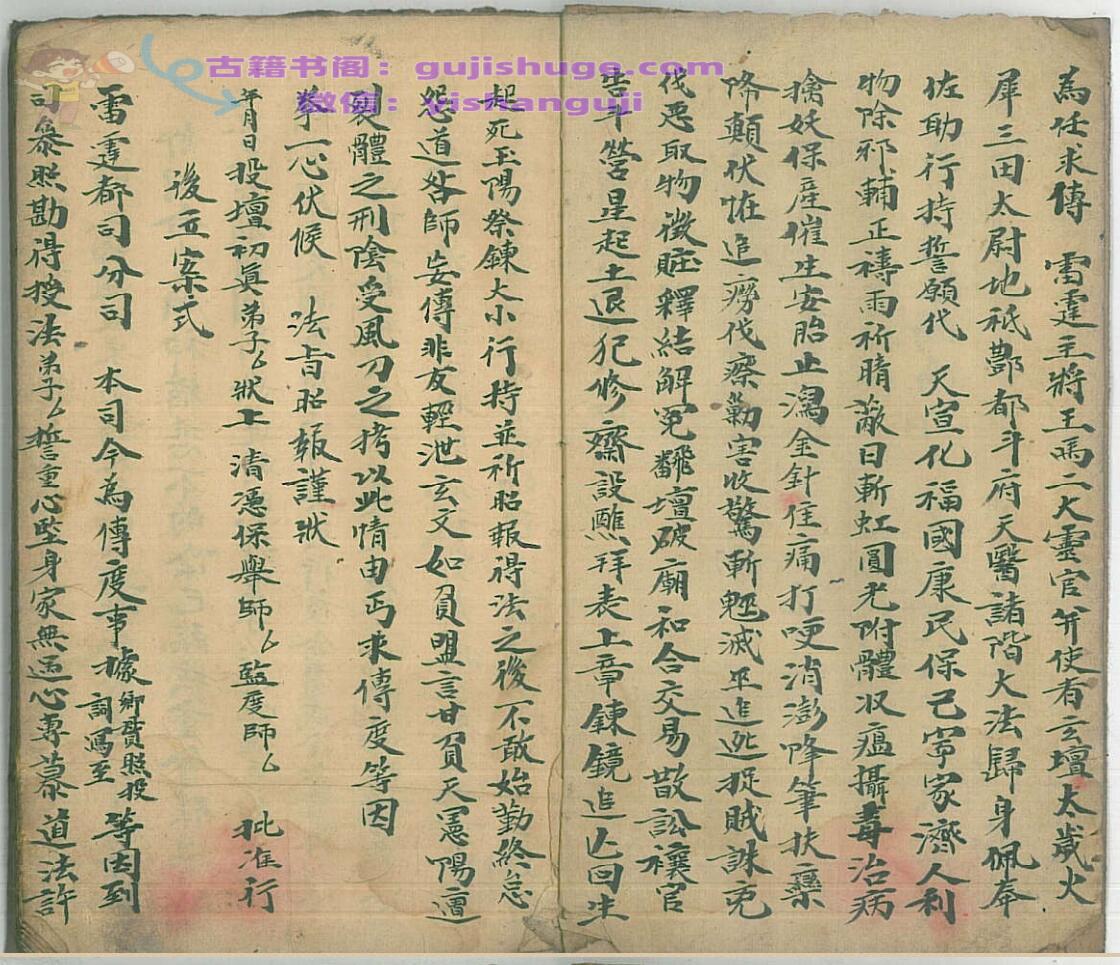 古籍书阁：gujishuge.com
微信：yishanguji
為任求傳　雷霆主將王馬二大靈官并使者玄壇太歲火
犀三田太尉地祇酆都斗府天醫諸階大法歸身佩奉
佐助行持誓願代　天宣化福國康民保己寧家濟人利
物除邪輔正禱雨祈晴敵日斬虹圓光附體收瘟攝毒治病
擒妖保産催生安胎止瀉金針住痛打哽消澎降筆扶鸞
降顛伏怪追癆伐瘵勦害收驚斬魈滅巫追迯捉賊誅兇
伐惡取物徵賍釋結解冤翻壇破廟和合交易散訟禳官
告斗營星起土退犯修齋設醮拜表上章鍊鏡追亡回生
起死玉陽祭鍊大小行持並祈昭報得法之後不敢始勤終怠
怨道咎師妄傳非友輕泄玄文如負盟言甘負天憲陽遭
裂體之刑陰受風刀之拷以此情由丐求傳度等因
拳一心伏候　法旨昭報謹狀
年月日投壇初真弟子厶狀上 清憑保舉師厶監度師厶　批准行
後立案式
雷霆都司分司　本司今為傳度事據鄉貫照投詞寫至等因到
司叅照勘得授法弟子厶誓重心堅身家無逗心專慕道法許